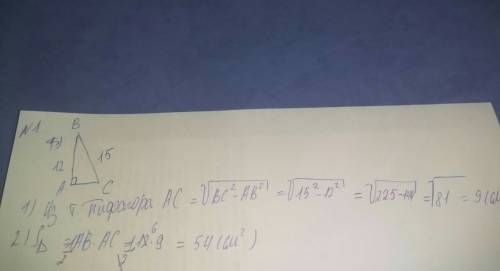 №1
B
12
15
A
C
1) Из т. Пифагора AC = √BC² - AB² = √15² - 12² = √225 - 144 = √81 = 9 (см
2) S△ = 1/2 AB · AC = 1/2 12 · 9 = 54 (см²)